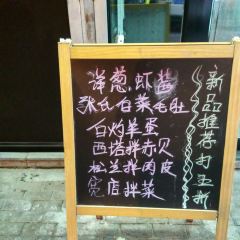 洋葱虾酱
张氏白菜毛肚
白灼羊蛋
西塔拌赤贝
松兰拌肉皮
宽店拌菜
新品推荐打五折